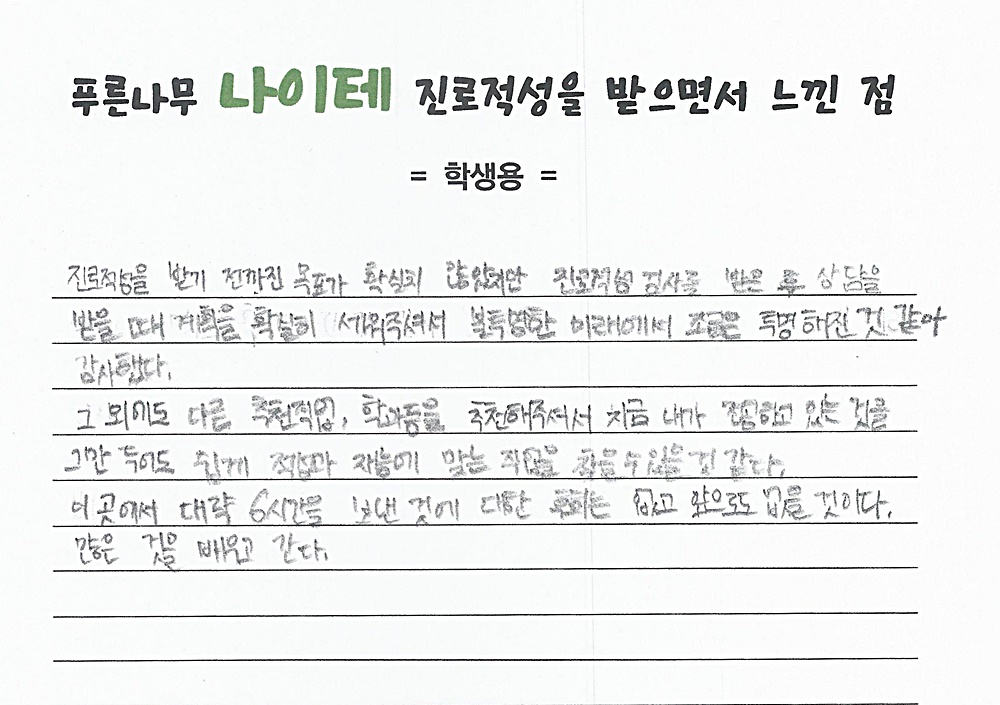 푸른나무 나이테 진로적성을 받으면서 느낀 점
= 학생용 =
진로적성을 받기 전까진 목표가 확실치 않았지만 진로적성 검사를 받은 후 상담을
받을 때 계획을 확실히 세워주셔서 불투명한 미래에서 조금은 투명해진 것 같아
감사했다.
그 외에도 다른 추천직업, 학과등을 추천해주셔서 지금 내가 전공하고 있는 것을
그만 두어도 쉽게 적성과 재능에 맞는 직업을 찾을 수 있을 것 같다.
이 곳에서 대략 6시간을 보낸 것에 대한 후회는 없고 앞으로도 없을 것이다.
많은 것을 배우고 간다.